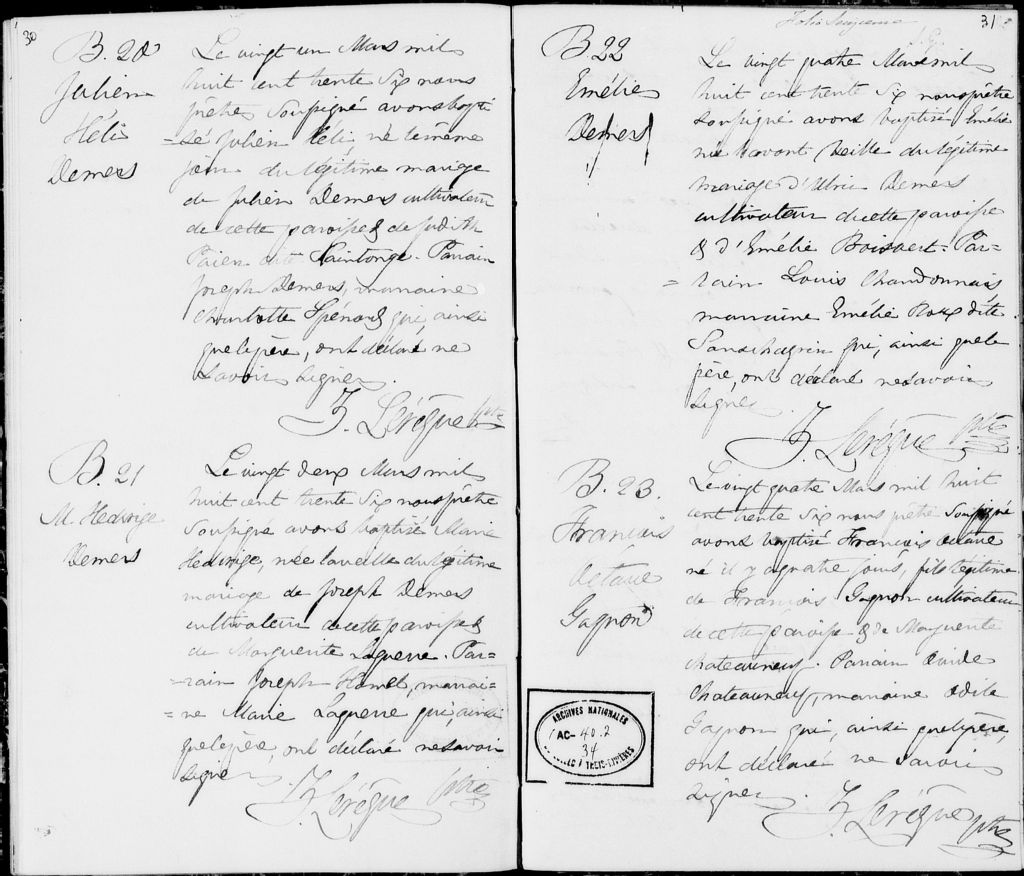 30
B. 20
Julien
Héli
Demers
Le vingt un Mars mil
huit cent trente six nous
prêtre soussigné avons bapti
=sé Julien Héli, né le même
jour du légitime mariage
de Julien Demers cultivateur
de cette paroisse & de Judith
Paien dite Saintonge. Parrain
Joseph Demers, marraine
Charlotte Spénard qui, ainsi
que le père, ont déclaré ne
savoir signer.
Ptre
B. 21
M. Hedwige
Demers
Le vingt deux Mars mil
huit cent trente six nous prêtre
soussigné avons baptisé Marie
Hedwige, née la veille du légitime
mariage de Joseph Demers
cultivateur de cette paroisse &
de Marguerite Laguerre. Par=
=rain Joseph Hamel, marrai=
=ne Marie Laguerre qui, ainsi
que le père, ont déclaré ne savoir
signer
Ptre
Folio Seizième
31
B. 22
Emélie
Demers
Le vingt quatre Mars mil
huit cent trente six nous prêtre
soussigné avons baptisé Emélie
née l'avant veille du légitime
mariage d'Ulric Demers
cultivateur de cette paroisse
& d'Emélie Boisvert. Par=
=rain Louis Chandonnais
marraine Emélie Roux dite
Sanschagrin qui, ainsi que le
père, ont déclaré ne savoir
signer.
Ptre
B. 23.
Francois
Octave
Gagnon
Le vingt quatre Mars mil huit
cent trente six nous prêtre soussigné
avons baptisé Francois Octave
né il y a quatre jours, fils légitime
de Francois Gagnon cultivateur
de cette paroisse & de Marguerite
Chateauneuf. Parrain
Chateauneuf, marraine Odile
Gagnon qui, ainsi que le père,
ont déclaré ne savoir
signer.
Ptre
ARCHIVES NATIONALES
AC- 40.2
34
À TROIS-RIVIÈRES